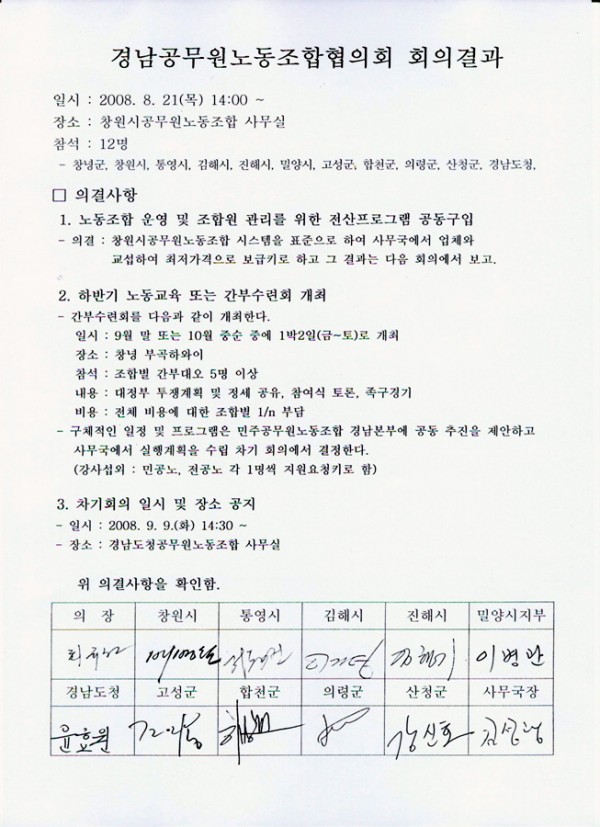 경남공무원노동조합협의회 회의결과
일시 : 2008. 8. 21(목) 14:00 ~
장소 : 창원시공무원노동조합 사무실
참석 : 12명
- 창녕군, 창원시, 통영시, 김해시, 진해시, 밀양시, 고성군, 합천군, 의령군, 산청군, 경남도청,
□ 의결사항
1. 노동조합 운영 및 조합원 관리를 위한 전산프로그램 공동구입
- 의결 : 창원시공무원노동조합 시스템을 표준으로 하여 사무국에서 업체와
교섭하여 최저가격으로 보급키로 하고 그 결과는 다음 회의에서 보고.
2. 하반기 노동교육 또는 간부수련회 개최
- 간부수련회를 다음과 같이 개최한다.
일시 : 9월 말 또는 10월 중순 중에 1박2일(금~토)로 개최
장소 : 창녕 부곡하와이
참석 : 조합별 간부대오 5명 이상
내용 : 대정부 투쟁계획 및 정세 공유, 참여식 토론, 족구경기
비용 : 전체 비용에 대한 조합별 1/n 부담
- 구체적인 일정 및 프로그램은 민주공무원노동조합 경남본부에 공동 추진을 제안하고
사무국에서 실행계획을 수립 차기 회의에서 결정한다.
(강사섭외 : 민공노, 전공노 각 1명씩 지원요청키로 함)
3. 차기회의 일시 및 장소 공지
- 일시 : 2008. 9. 9.(화) 14:30 ~
- 장소 : 경남도청공무원노동조합 사무실
위 의결사항을 확인함.
의 장 창원시 통영시 김해시 진해시 밀양시지부
이병관
경남도청 고성군 합천군 의령군 산청군 사무국장
윤효원 강신호